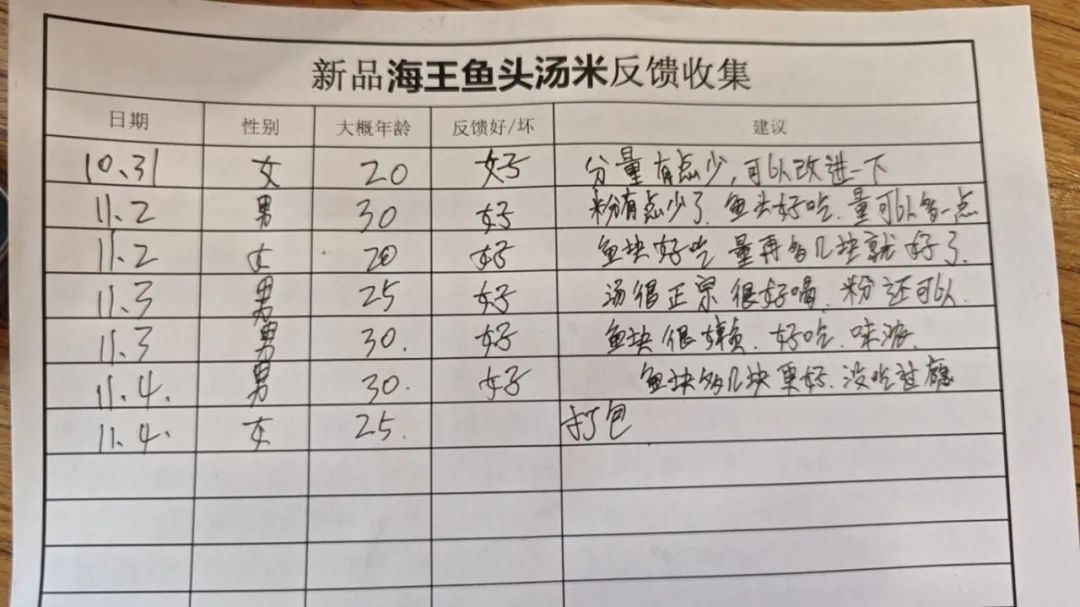 新品海王鱼头汤米反馈收集
日期 性别 大概年龄 反馈好/坏 建议
10.31 女 20 好 分量有点少,可以改进一下
11.2 男 30 好 粉有点少了.鱼头好吃.量可以多一点
11.2 女 20 好 鱼块好吃 量再多几块就好了.
11.3 男 25 好 汤很正宗很好喝.粉还可以.
11.3 男 30. 好 鱼块很 好吃.味
11.4. 男 30. 好 鱼块多几块更好.没吃过瘾
11.4. 女 25. 打包